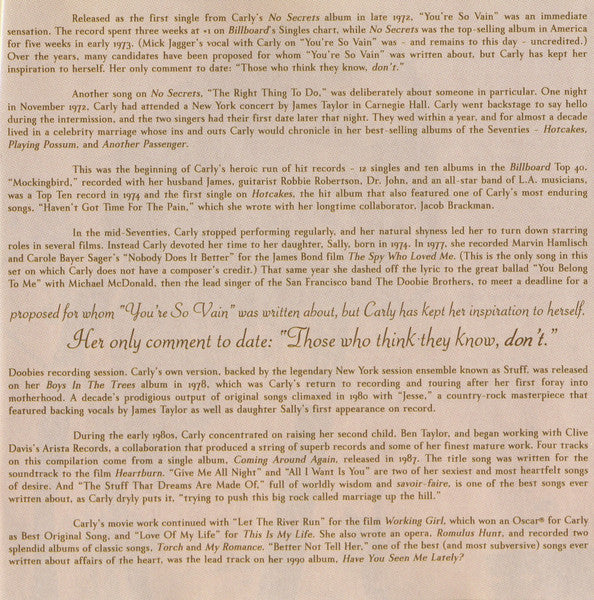 Released as the first single from Carly's No Secrets album in late 1972, "You're So Vain" was an immediate
sensation. The record spent three weeks at #1 on Billboard's Singles chart, while No Secrets was the top-selling album in America
for five weeks in early 1973. (Mick Jagger's vocal with Carly on "You're So Vain" was - and remains to this day - uncredited.)
Over the years, many candidates have been proposed for whom "You're So Vain" was written about, but Carly has kept her
inspiration to herself. Her only comment to date: "Those who think they know, don't."
Another song on No Secrets, "The Right Thing To Do," was deliberately about someone in particular. One night
in November 1972, Carly had attended a New York concert by James Taylor in Carnegie Hall. Carly went backstage to say hello
during the intermission, and the two singers had their first date later that night. They wed within a year, and for almost a decade
lived in a celebrity marriage whose ins and outs Carly would chronicle in her best-selling albums of the Seventies - Hotcakes,
Playing Possum, and Another Passenger.
This was the beginning of Carly's heroic run of hit records - 12 singles and ten albums in the Billboard Top 40.
"Mockingbird," recorded with her husband James, guitarist Robbie Robertson, Dr. John, and an all-star band of L.A. musicians,
was a Top Ten record in 1974 and the first single on Hotcakes, the hit album that also featured one of Carly's most enduring
songs, "Haven't Got Time For The Pain," which she wrote with her longtime collaborator, Jacob Brackman.
In the mid-Seventies, Carly stopped performing regularly, and her natural shyness led her to turn down starring
roles in several films. Instead Carly devoted her time to her daughter, Sally, born in 1974. In 1977, she recorded Marvin Hamlisch
and Carole Bayer Sager's "Nobody Does It Better" for the James Bond film The Spy Who Loved Me. (This is the only song in this
set on which Carly does not have a composer's credit.) That same year she dashed off the lyric to the great ballad "You Belong
To Me" with Michael McDonald, then the lead singer of the San Francisco band The Doobie Brothers, to meet a deadline for a
proposed for whom "You're So Vain" was written about, but Carly has kept her inspiration to herself.
Her only comment to date: "Those who think they know, don't."
Doobies recording session. Carly's own version, backed by the legendary New York session ensemble known as Stuff, was released
on her Boys In The Trees album in 1978, which was Carly's return to recording and touring after her first foray into
motherhood. A decade's prodigious output of original songs climaxed in 1980 with "Jesse," a country-rock masterpiece that
featured backing vocals by James Taylor as well as daughter Sally's first appearance on record.
During the early 1980s, Carly concentrated on raising her second child, Ben Taylor, and began working with Clive
Davis's Arista Records, a collaboration that produced a string of superb records and some of her finest mature work. Four tracks
on this compilation come from a single album, Coming Around Again, released in 1987. The title song was written for the
soundtrack to the film Heartburn. "Give Me All Night" and "All I Want Is You" are two of her sexiest and most heartfelt songs
of desire. And "The Stuff That Dreams Are Made Of," full of worldly wisdom and savoir-faire, is one of the best songs ever
written about, as Carly dryly puts it, "trying to push this big rock called marriage up the hill."
Carly's movie work continued with "Let The River Run" for the film Working Girl, which won an Oscar® for Carly
as Best Original Song, and "Love Of My Life" for This Is My Life. She also wrote an opera, Romulus Hunt, and recorded two
splendid albums of classic songs, Torch and My Romance. "Better Not Tell Her," one of the best (and most subversive) songs ever
written about affairs of the heart, was the lead track on her 1990 album, Have You Seen Me Lately?